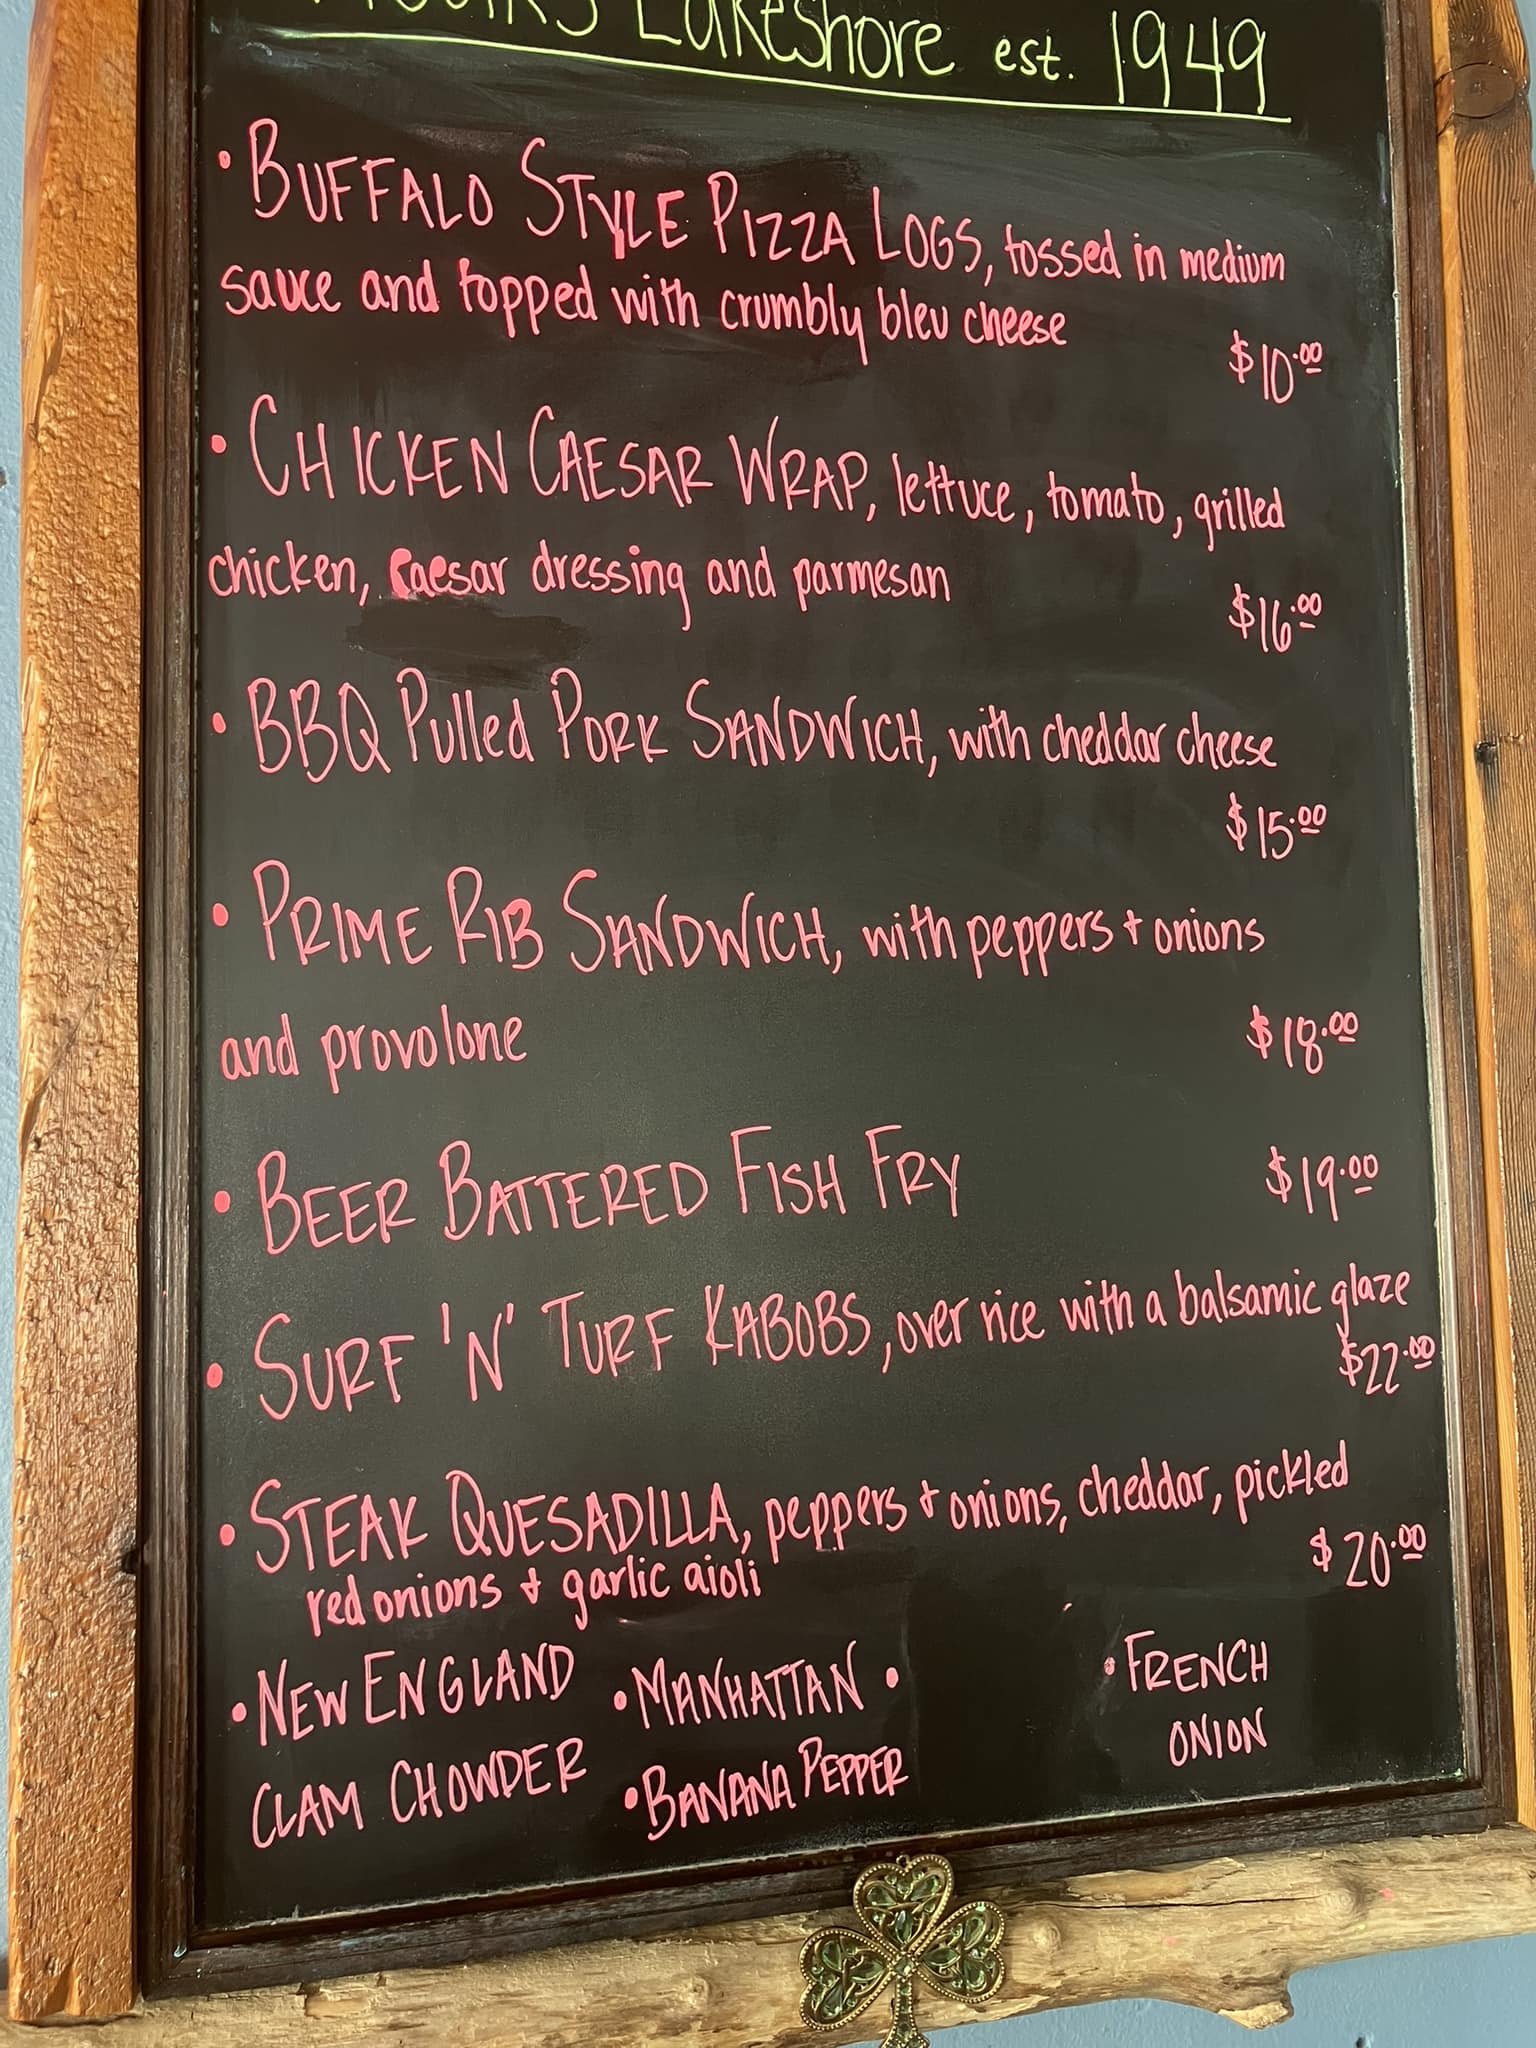 Lakeshore est. 1949
• BUFFALO STYLE PIZZA LOGS, tossed in medium
sauce and topped with crumbly bleu cheese
$10.00
• CHICKEN CAESAR WRAP, lettuce, tomato, grilled
chicken, Caesar dressing and parmesan
$16.00
• BBQ Pulled PORK SANDWICH, with cheddar cheese
$15.00
• PRIME RIB SANDWICH, with peppers + onions
and provolone $18.00
• BEER BATTERED FISH FRY $19.00
• SURF 'N' TURF KABOBS, over rice with a balsamic glaze
$22.00
• STEAK QUESADILLA, peppers + onions, cheddar, pickled
red onions + garlic aioli $20.00
• NEW ENGLAND
CLAM CHOWDER
• MANHATTAN •
• BANANA PEPPER
• FRENCH
ONION